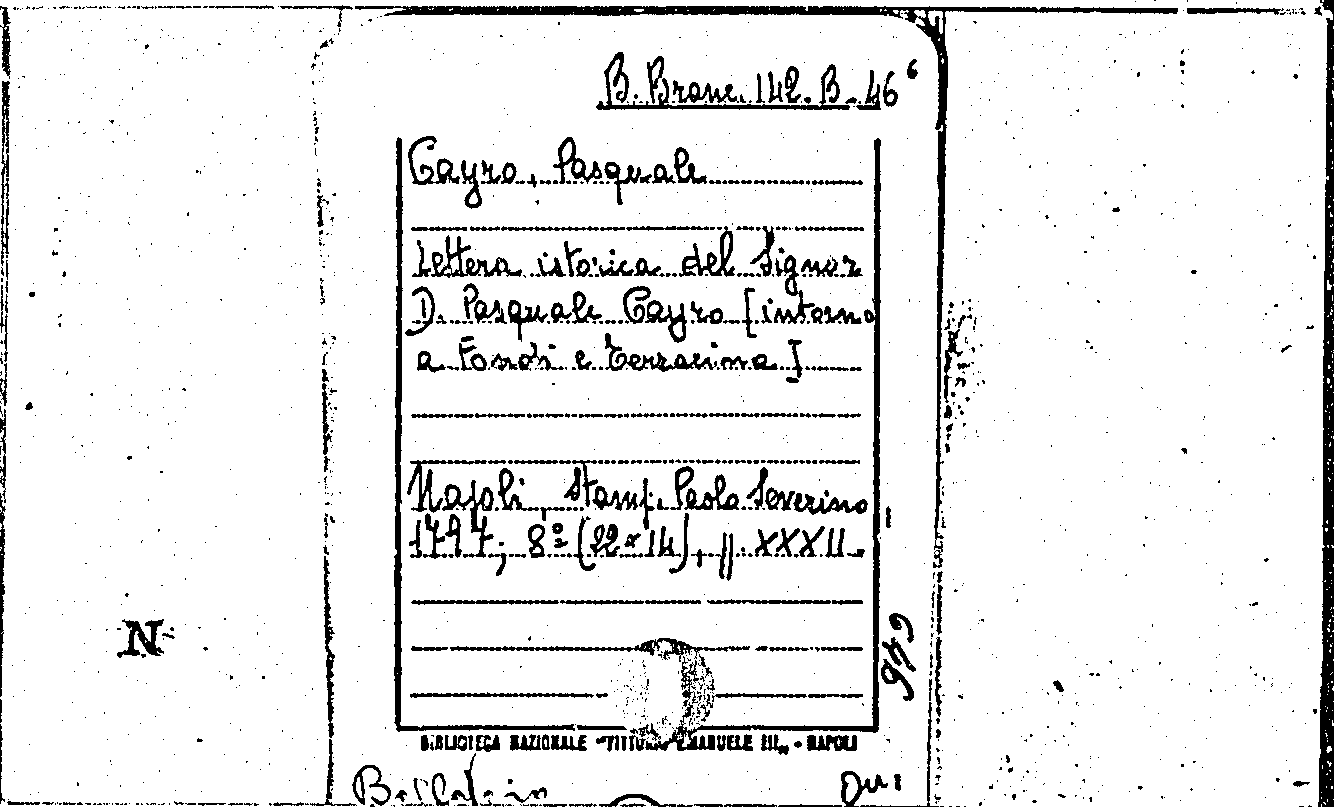 B. Branc. 142. B. 46⁶
Cayro, Pasquale
Lettera istorica del Signor
D. Pasquale Cayro [intorno
a Fondi e Terracina]
Napoli, Stamp. Paolo Severino,
1797; 8º (22x14), pp. XXXII.
N
BIBLIOTECA NAZIONALE "VITTORIO EMANUELE III" - NAPOLI